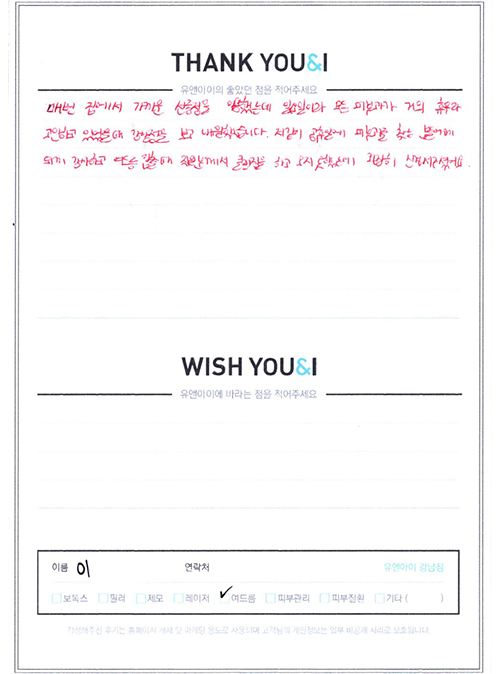 THANK YOU&I
유앤아이의 좋았던 점을 적어주세요
매번 집에서 가까운 선릉점을 일요일이라 모든 피부과가 거의 휴무라
고민하고 있었을때 강남점을 보고 내원했습니다. 피부과를 찾는
되게 감사하고 하고 오지 못했는데 친절히
WISH YOU&I
유앤아이에 바라는 점을 적어주세요
이름 이 연락처 유앤아이 강남점
보톡스 필러 제모 레이저 여드름 피부관리 피부질환 기타 ( )
작성해주신 후기는 홈페이지 게재 및 마케팅 용도로 사용되며 고객님의 개인정보는 일부 비공개 처리로 보호됩니다.